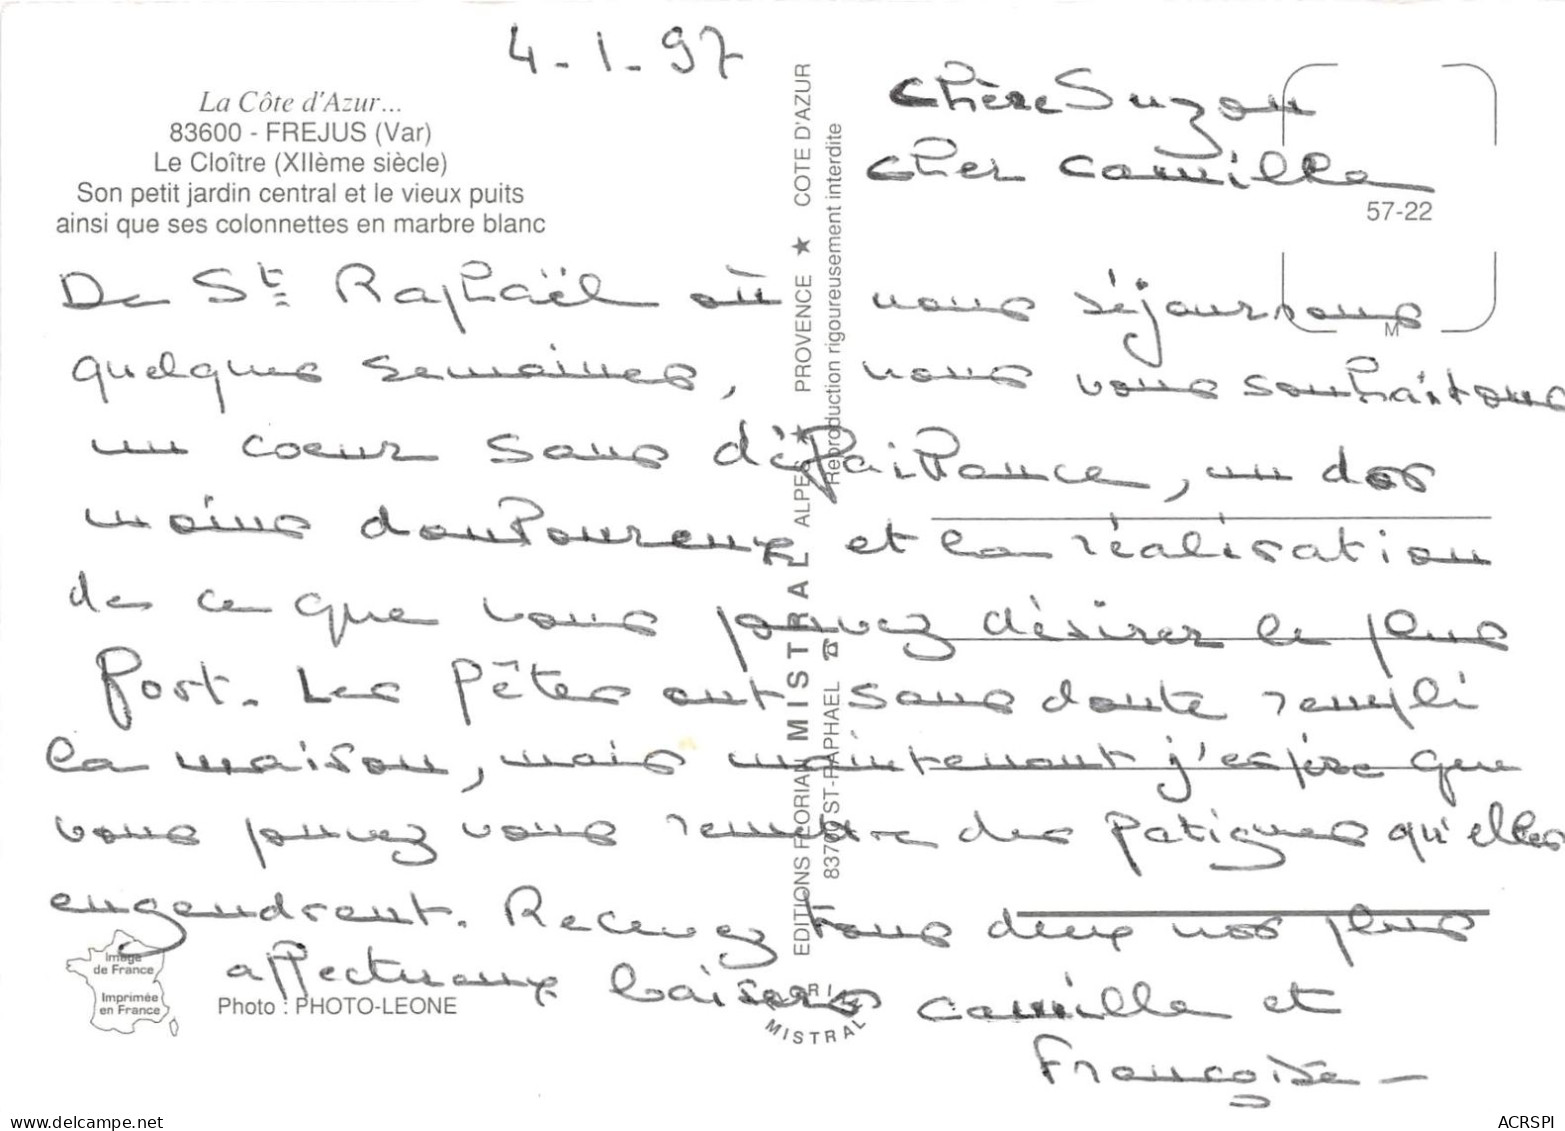 4-1-97
La Côte d'Azur...
83600 - FREJUS (Var)
Le Cloître (XIIème siècle)
Son petit jardin central et le vieux puits
ainsi que ses colonnettes en marbre blanc
Chère Suzon
Cher Camille
57-22
De St Raphaël où nous séjournons
quelques semaines, nous vous souhaitons
un coeur sans défaillance, un dos
moins douloureux et la réalisation
de ce que vous pouvez désirer le plus
fort. Les fêtes ont sans doute rempli
la maison, mais maintenant j'espère que
vous pouvez vous remettre des fatigues qu'elles
engendrent. Recevez tous deux nos plus
affectueux baisers Camille et
Françoise -
EDITIONS FLORIAN MISTRAL ALPES ★ PROVENCE ★ COTE D'AZUR
83700 ST-RAPHAEL ☎ Reproduction rigoureusement interdite
M
Image
de France
Imprimée
en France
Photo : PHOTO-LEONE
MISTRAL
www.delcampe.net
ACRSPI